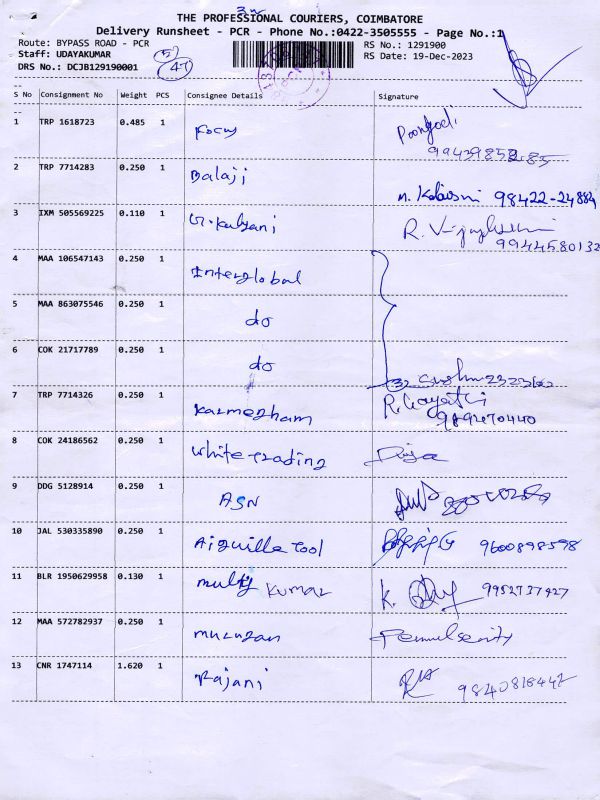 THE PROFESSIONAL COURIERS, COIMBATORE
Delivery Runsheet - PCR - Phone No.:0422-3505555 - Page No.:1
Route: BYPASS ROAD - PCR RS No.: 1291900
Staff: UDAYAKUMAR 57 RS Date: 19-Dec-2023
DRS No.: DCJB129190001 47
S No Consignment No Weight PCS Consignee Details Signature
1 TRP 1618723 0.485 1 Focus
2 TRP 7714283 0.250 1 Balaji 98422-24884
3 IXM 505569225 0.110 1 9944580132
4 MAA 106547143 0.250 1 Interglobal
5 MAA 863075546 0.250 1 do
6 COK 21717789 0.250 1 do
7 TRP 7714326 0.250 1 Karmegham R.Gayathri
9894270440
8 COK 24186562 0.250 1 White trading
9 DDG 5128914 0.250 1 ASN
10 JAL 530335890 0.250 1 Aiguille Tool 9600898598
11 BLR 1950629958 0.130 1 Multy Kumar K. 9952737427
12 MAA 572782937 0.250 1 Murugan
13 CNR 1747114 1.620 1 Rajani 9840818442